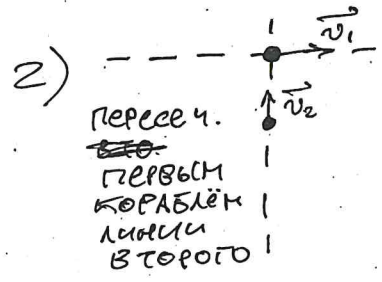 2)
v₁
v₂
пересеч.
первым
кораблём
линии
второго